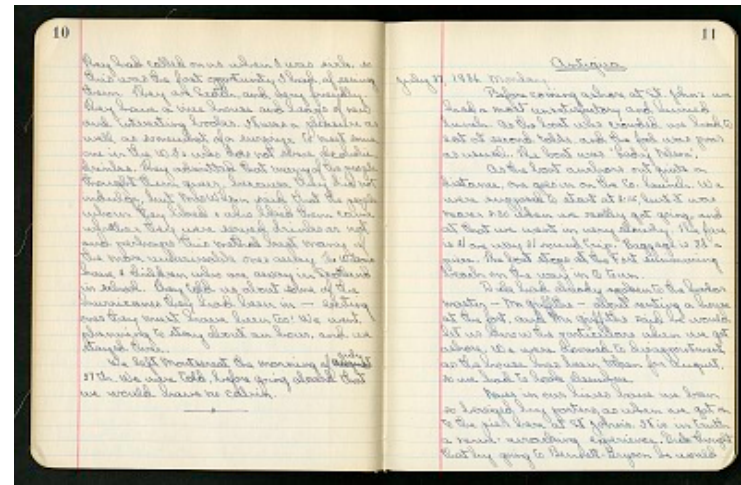 10
They had called on us when I was sick, so
this was the first opportunity I had of seeing
them. They are Scotch and very friendly.
They have a nice house and loads of new
and interesting books. It was a pleasure as
well as somewhat of a surprise to meet some
one in the W.I.'s who does not serve alcoholic
drinks. They admitted that many of the people
thought them queer, because they did not
indulge, but Mrs. said that the people
whom they liked & who liked them came
whether they were served drinks or not
and perhaps this method kept many of
the more undesirable ones away.
have 2 children who are away in Scotland
in school. They told us about some of the
hurricanes they had been in — exciting
ones they must have been too! We went
planning to stay about an hour, and we
stayed two.
We left Montserrat the morning of July
27th. We were told before going aboard that
we would have no cabin.
11
Antigua
July 27, 1936 Monday.
Before coming ashore at St. John's we
had a most unsatisfactory and hurried
lunch. As the boat was crowded we had to
eat at second table and the food was poor
as usual. The boat was "Lady Nelson."
As the boat anchors out quite a
distance, one goes in on the Co. launch. We
were supposed to start at but it was
nearer when we really got going, and
at that we went in very slowly. The fare
is one way round trip. Baggage is
piece. The boat stops at the Fort swimming
beach on the way in to town.
had already spoken to the harbor
master – Mr. Griffiths – about renting a house
at the fort, and Mr. Griffiths said he would
let us know the particulars when we got
ashore. We were doomed to disappointment
as the house has been taken for August,
so we had to look elsewhere.
Never in our lives have we been
so besieged by porters, as when we got on
to the pier here at St. John's. It is in truth
a nerve-wracking experience. thought
that by going to Bennett-Bryson he would